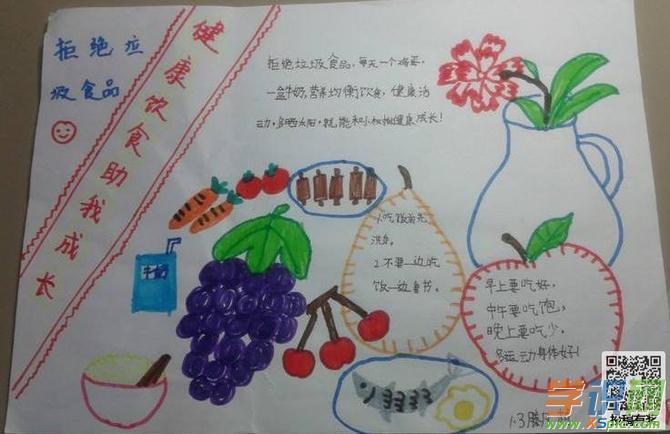 拒绝垃
圾食品
健康饮食助我成长
拒绝垃圾食品，每天一个鸡蛋，
一盒牛奶，营养均衡饮食，健康活
动，多晒太阳，就能和小松树健康成长！
1.吃饭前先
洗手。
2.不要一边吃
饭一边看书。
早上要吃好，
中午要吃饱，
晚上要吃少。
多运动身体好！
牛奶
1.3
学讲网